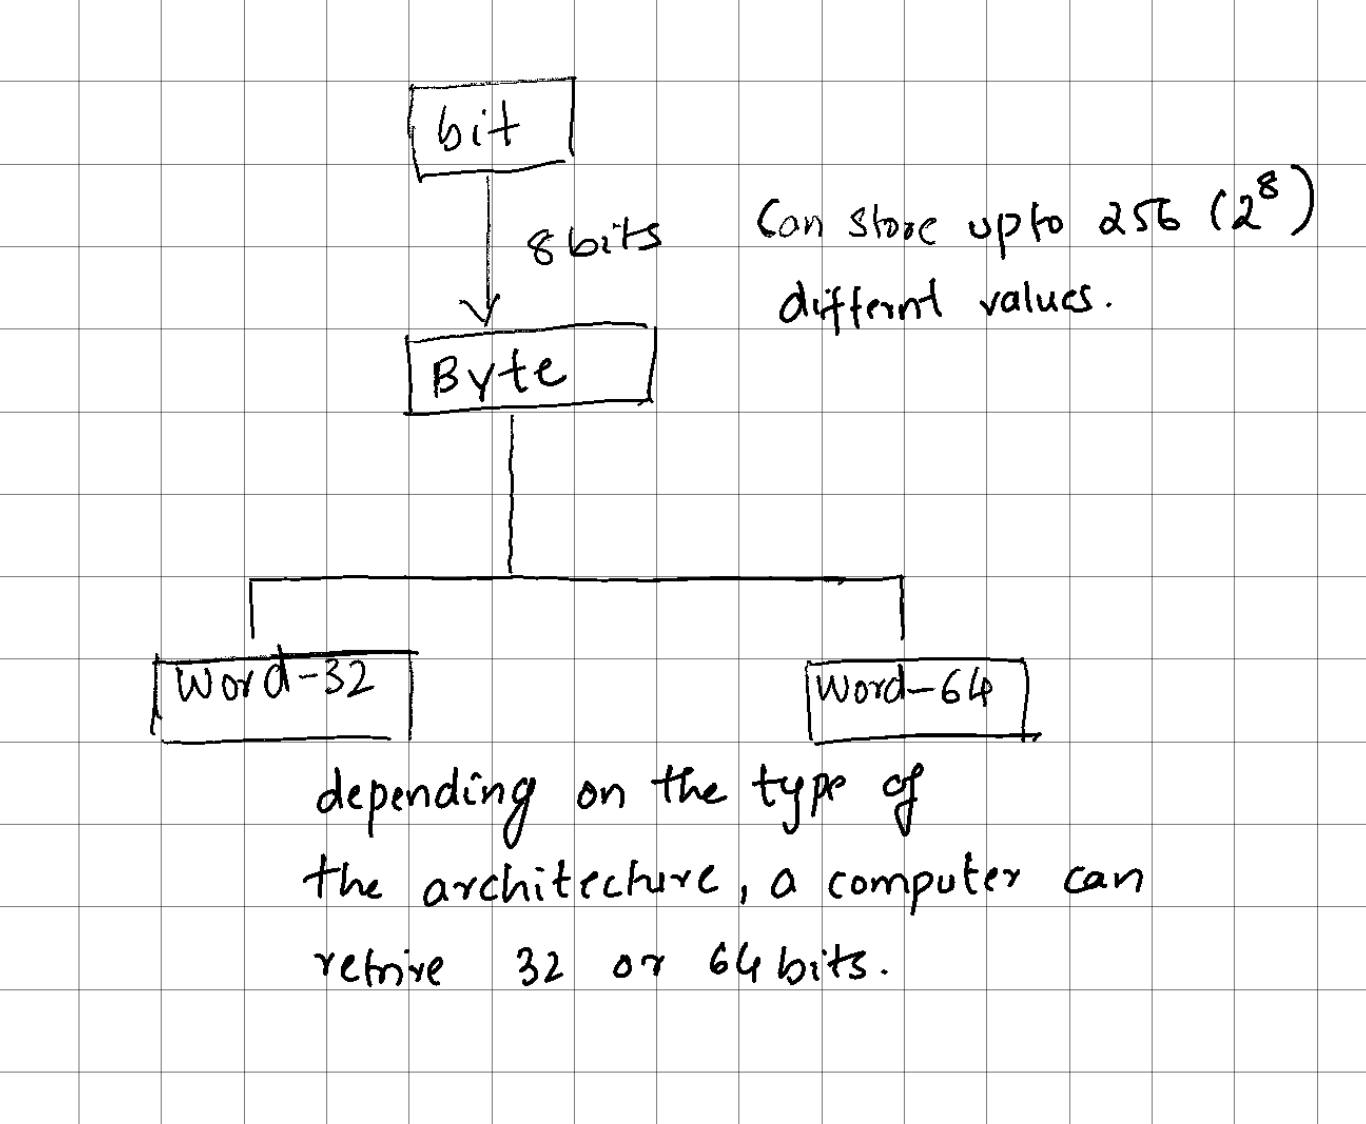 bit
8 bits
Can store upto 256 (2^8)
different values.
Byte
Word-32
Word-64
depending on the type of
the architecture, a computer can
retrive 32 or 64 bits.